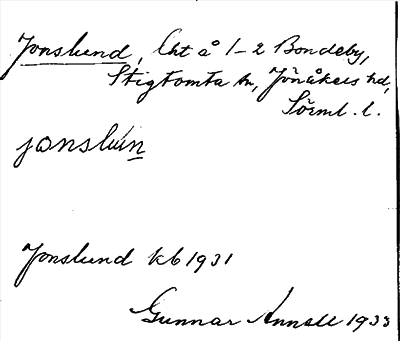 Jonslund, Lht å 1-2 Bondeby,
Stigtomta sn, Jönåkers hd,
Sörml. l.
jonslùn
Jonslund kb 1931
Gunnar 1933